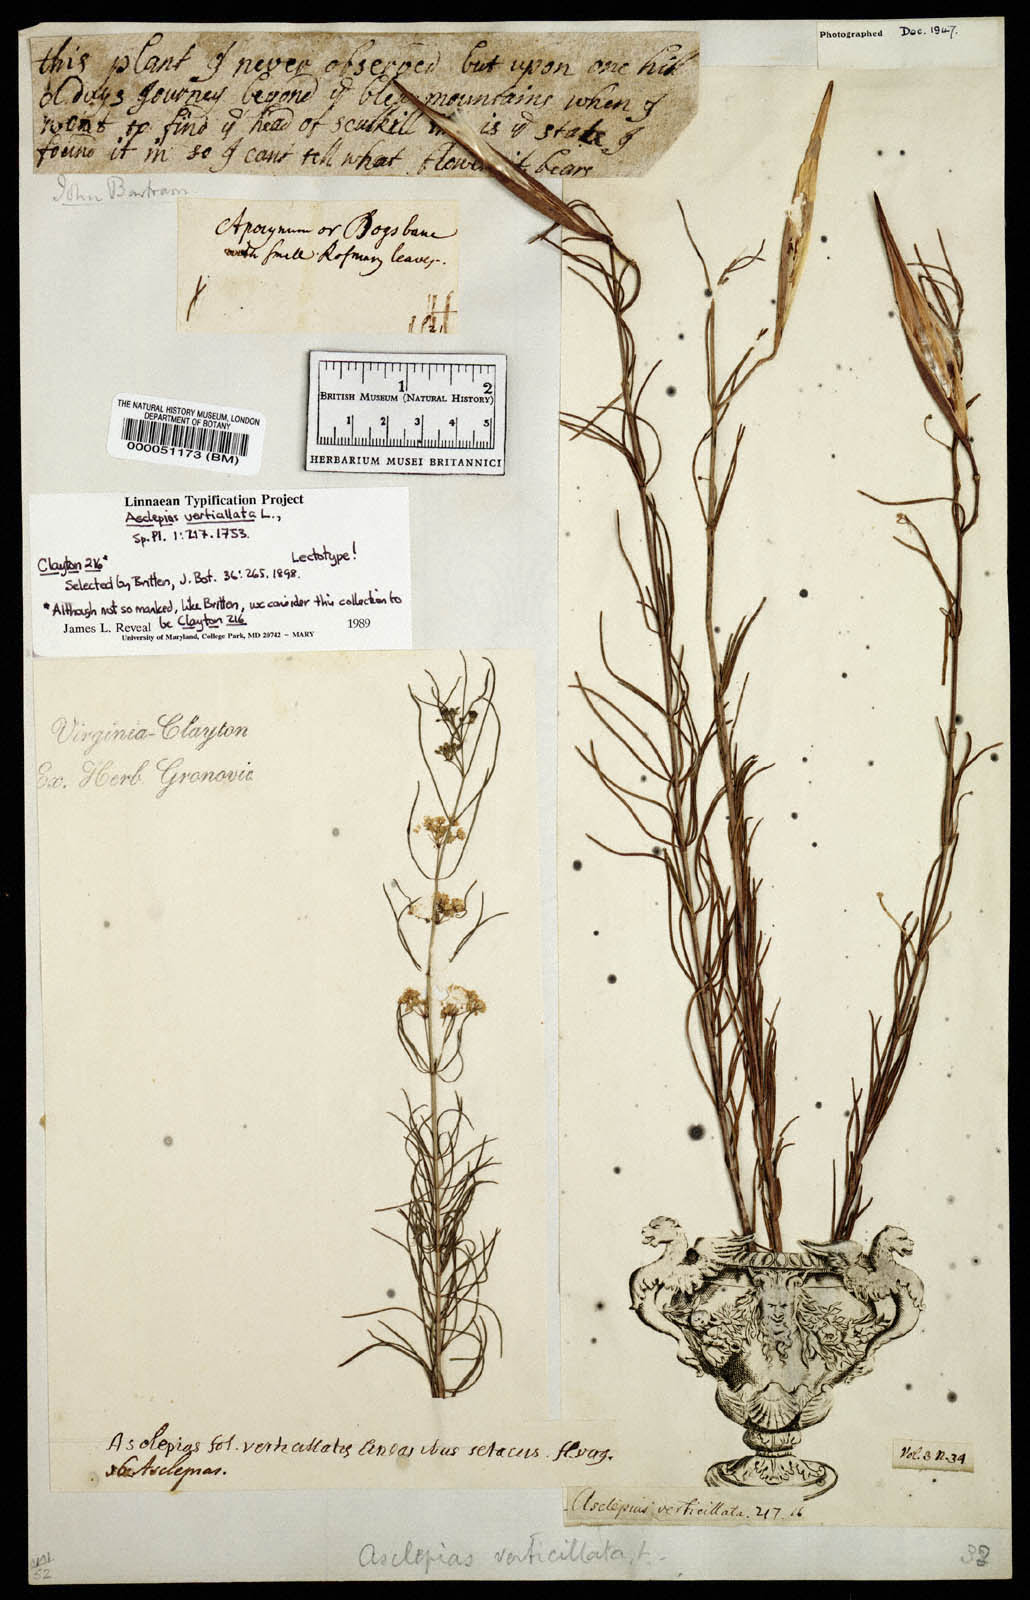 Photographed Dec. 1947.
this plant I never observed but upon one hill
2 days Journey beyond ye blew mountains when I
went to find ye head of sculkill is ye state I
found it in so I cant tell what flower it bears
John Bartram
Apocynum or Dogsbane
with small Rosmary leaves.
1 2
British Museum (Natural History)
1 2 3 4 5
HERBARIUM MUSEI BRITANNICI
THE NATURAL HISTORY MUSEUM, LONDON
DEPARTMENT OF BOTANY
000051173 (BM)
Linnaean Typification Project
Asclepias verticillata L.,
Sp. Pl. 1: 217. 1753.
Clayton 216* Lectotype!
Selected by Britten, J. Bot. 36: 265. 1898.
*Although not so marked, like Britten, we consider this collection to
be Clayton 216
James L. Reveal 1989
University of Maryland, College Park, MD 20742 – MARY
Virginia-Clayton
Ex. Herb. Gronovic
Asclepias fol. verticillatis linearibus setaceis. fl. virg.
Asclepias.
Vol. 3 N. 34
Asclepias verticillata. 217. 16
Asclepias verticillata, L.
32
52